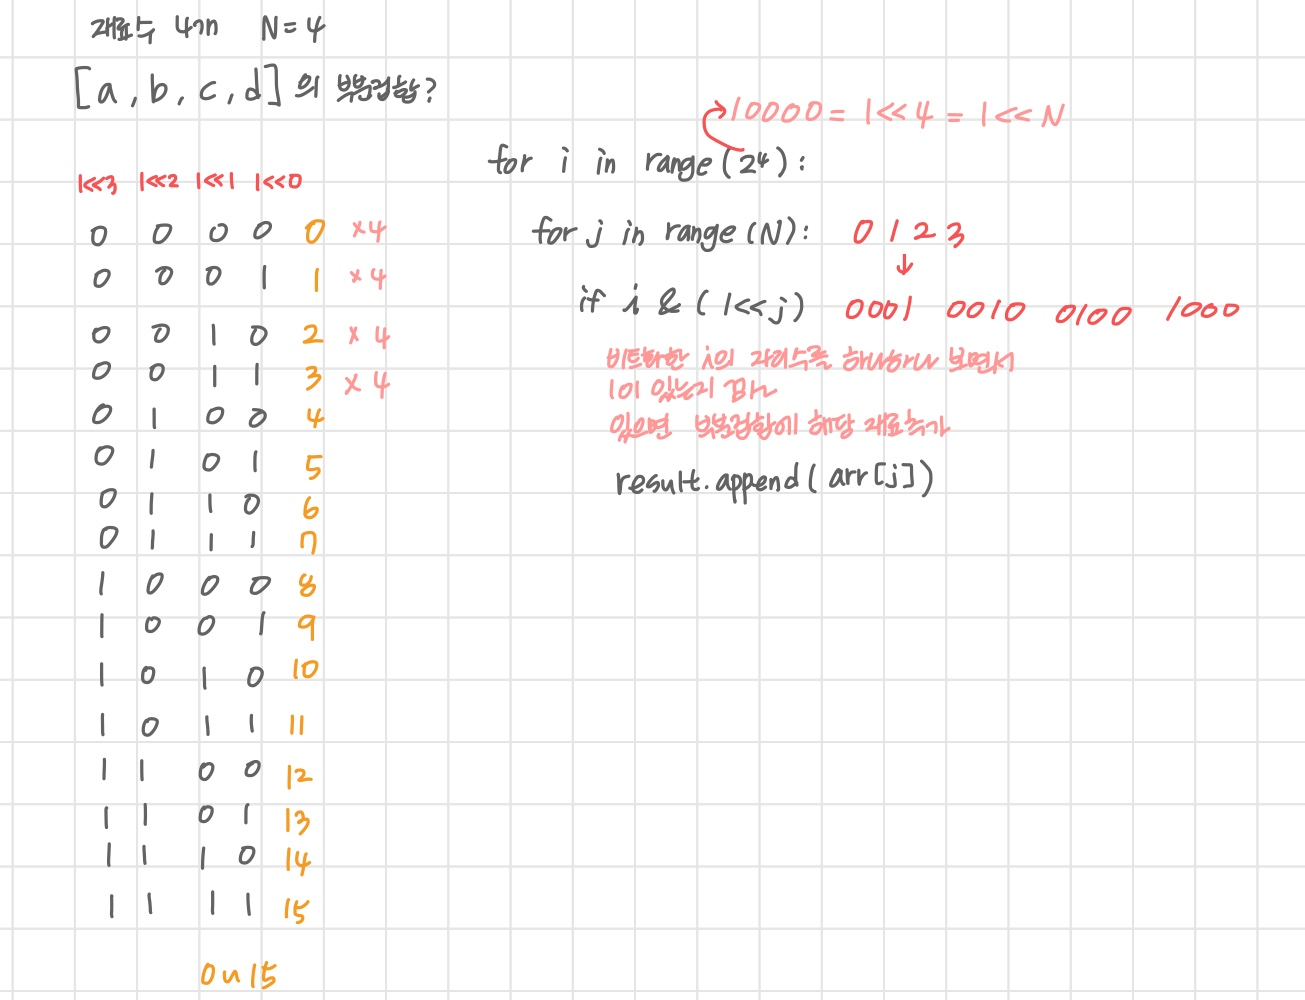 재료수 4개 N=4
[a, b, c, d]의 부분집합?
1<<3 1<<2 1<<1 1<<0
0 0 0 0 0 ×4
0 0 0 1 1 ×4
0 0 1 0 2 ×4
0 0 1 1 3 ×4
0 1 0 0 4
0 1 0 1 5
0 1 1 0 6
0 1 1 1 7
1 0 0 0 8
1 0 0 1 9
1 0 1 0 10
1 0 1 1 11
1 1 0 0 12
1 1 0 1 13
1 1 1 0 14
1 1 1 1 15
0~15
10000 = 1<<4 = 1<<N
for i in range(2⁴):
for j in range(N): 0 1 2 3
↓
if i & (1<<j) 0001 0010 0100 1000
비트화한 i의 자리수를 하나하나 보면서
1이 있는지 판단
있으면 부분집합에 해당 재료추가
result.append(arr[j])